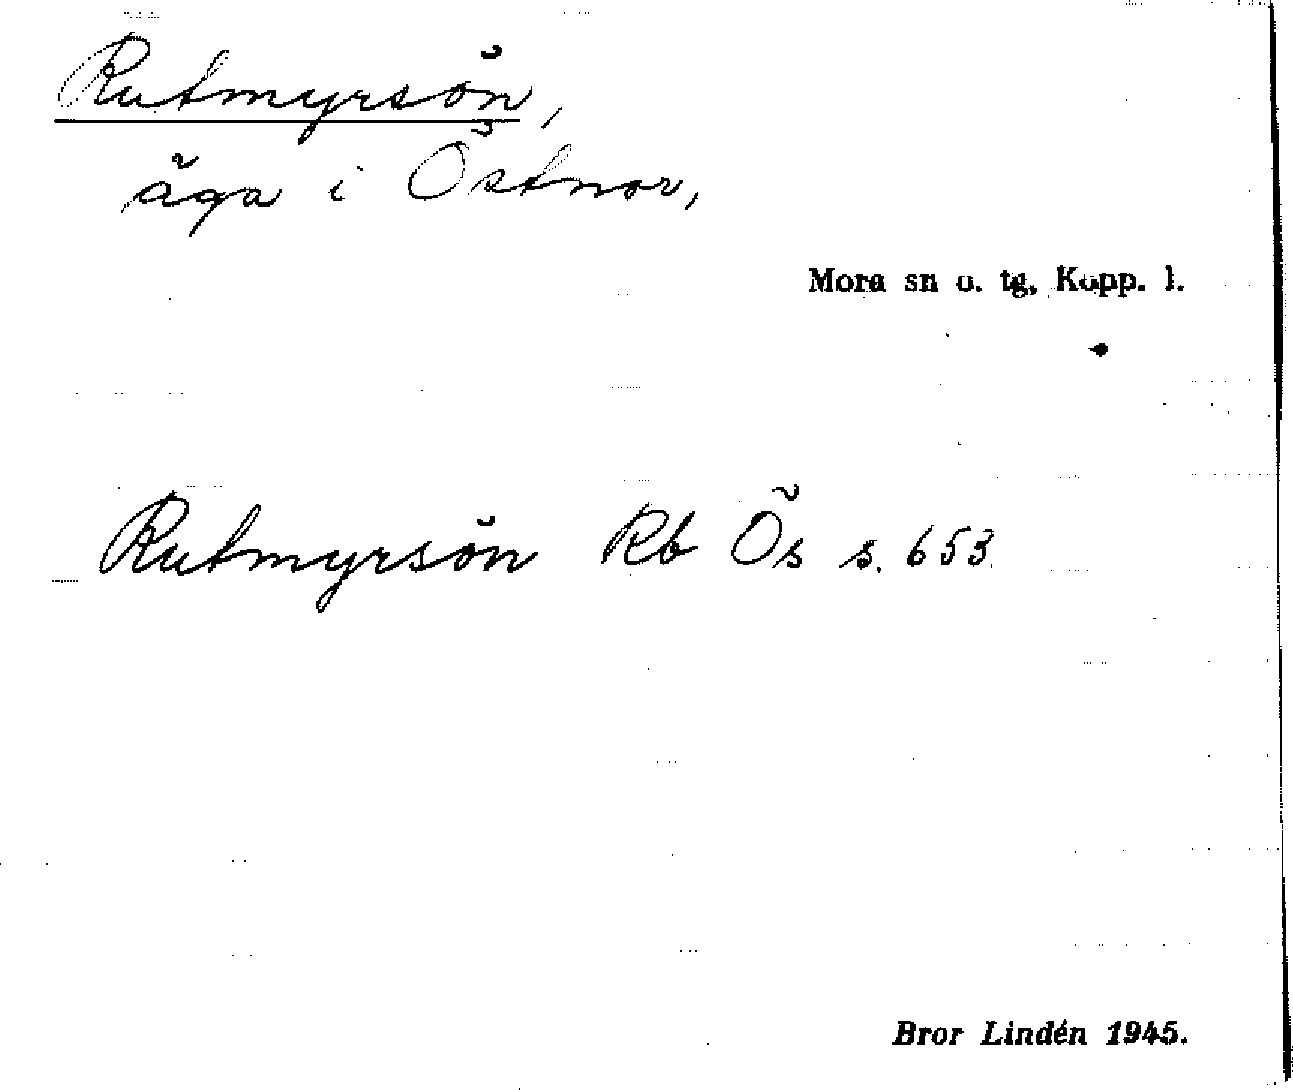 Rutmyrsön,
äga i Östnor,
Mora sn o. tg, Kopp. l.
Rutmyrsön Rb Ös s. 653
Bror Lindén 1945.